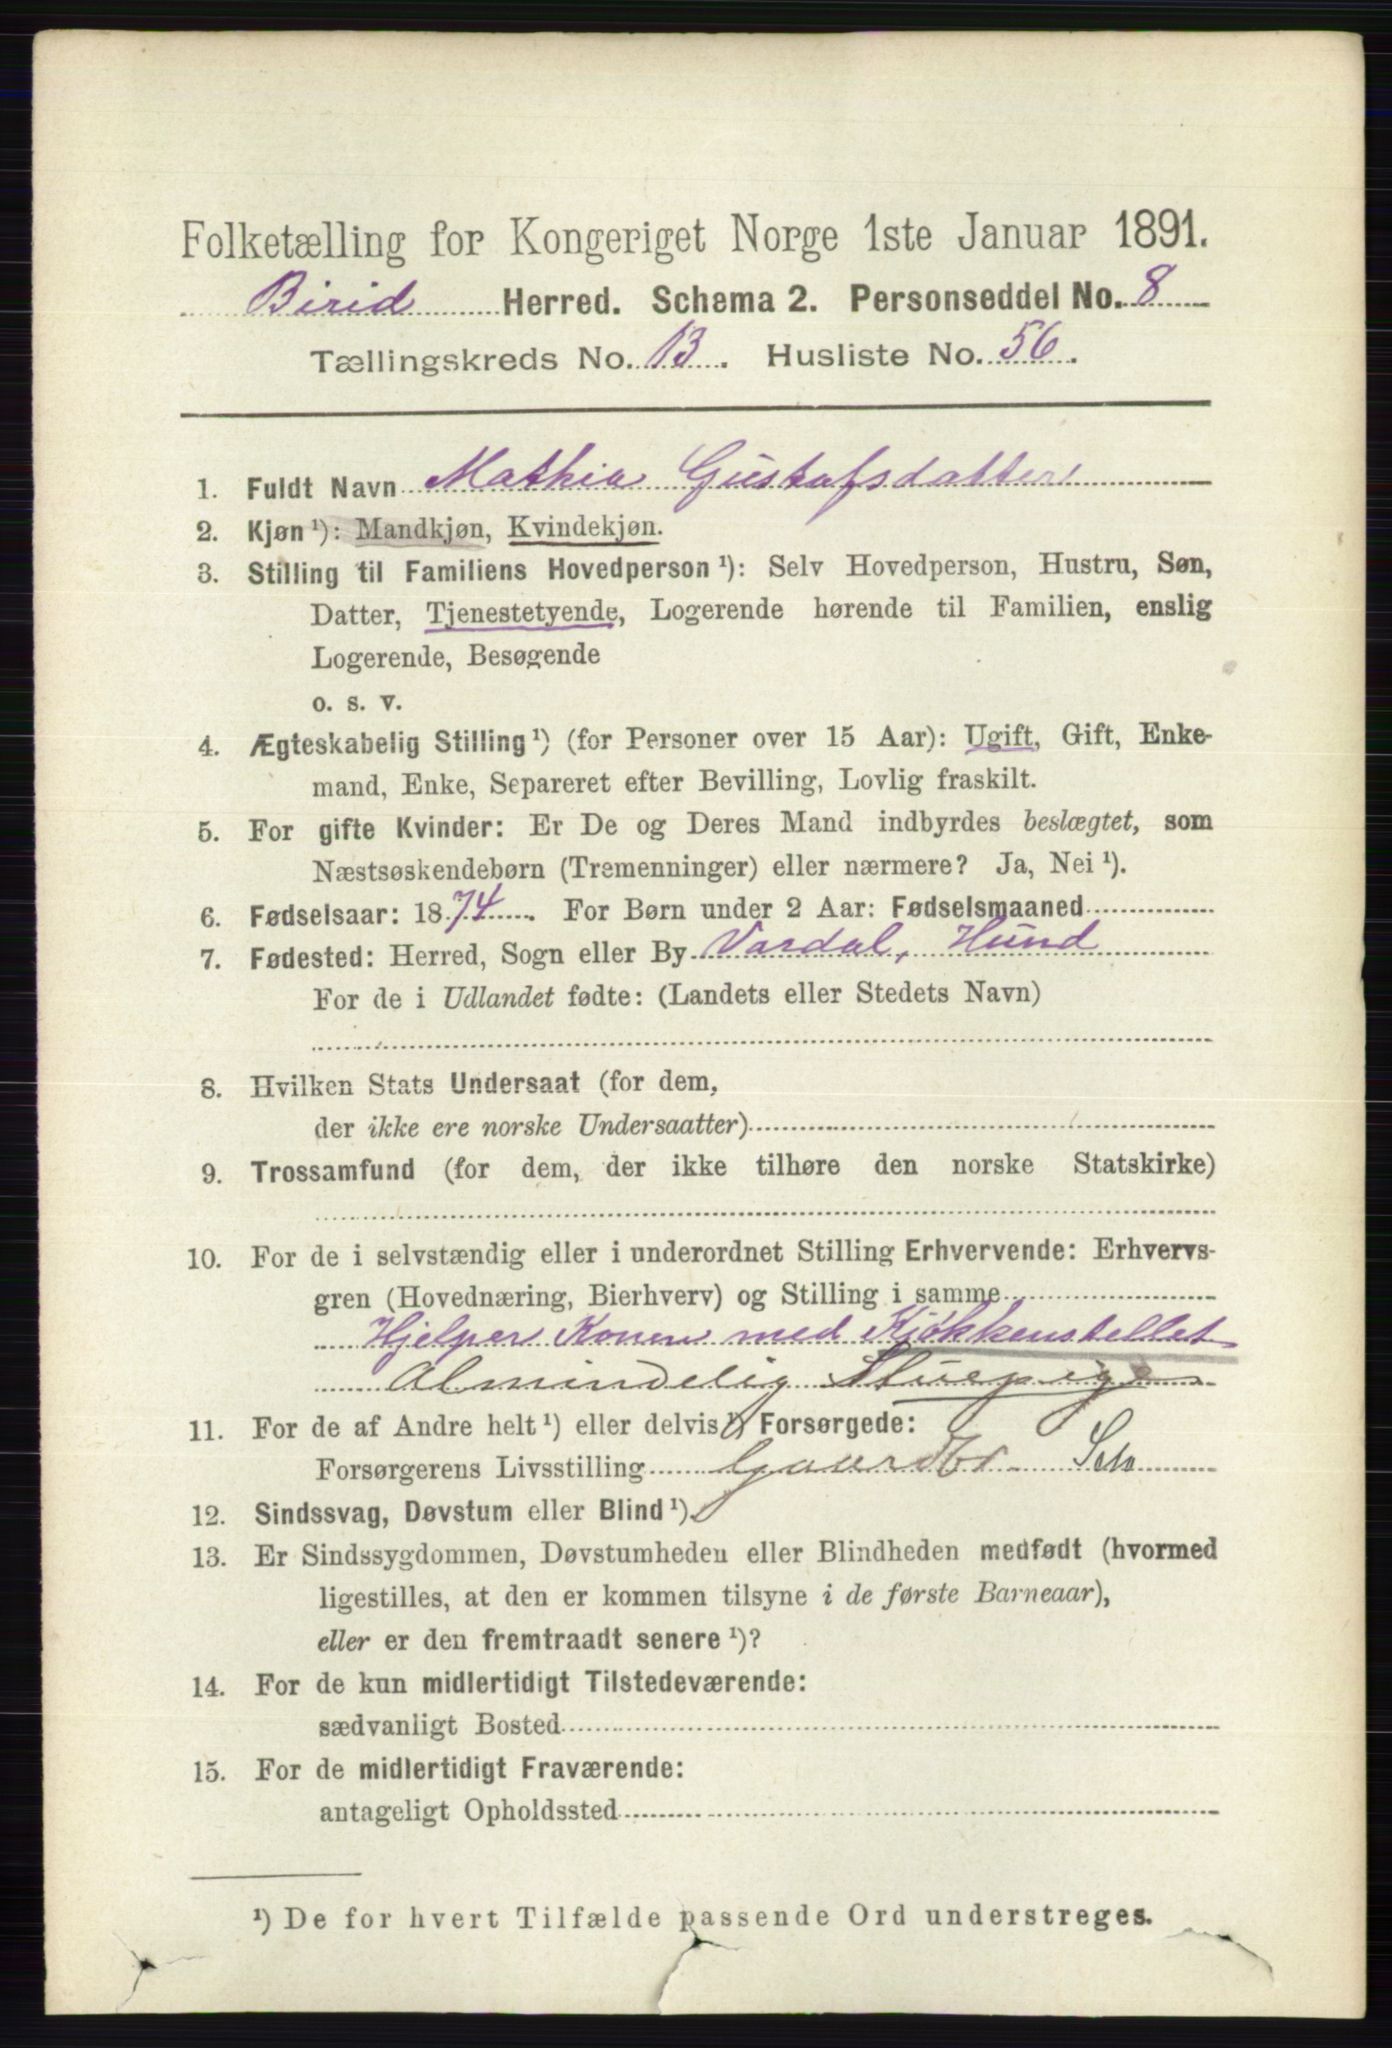 Folketælling for Kongeriget Norge 1ste Januar 1891.
Birid Herred. Schema 2. Personseddel No. 8
Tællingskreds No. 13. Husliste No. 56.
1. Fuldt Navn Mathia Gustafsdatter
2. Kjøn ¹): Mandkjøn, Kvindekjøn.
3. Stilling til Familiens Hovedperson ¹): Selv Hovedperson, Hustru, Søn,
Datter, Tjenestetyende, Logerende hørende til Familien, enslig
Logerende, Besøgende
o. s. v.
4. Ægteskabelig Stilling ¹) (for Personer over 15 Aar): Ugift, Gift, Enke-
mand, Enke, Separeret efter Bevilling, Lovlig fraskilt.
5. For gifte Kvinder: Er De og Deres Mand indbyrdes beslægtet, som
Næstsøskendebørn (Tremenninger) eller nærmere? Ja, Nei ¹).
6. Fødselsaar: 1874. For Børn under 2 Aar: Fødselsmaaned
7. Fødested: Herred, Sogn eller By Vardal, Hund
For de i Udlandet fødte: (Landets eller Stedets Navn)
8. Hvilken Stats Undersaat (for dem,
der ikke ere norske Undersaatter)
9. Trossamfund (for dem, der ikke tilhøre den norske Statskirke)
10. For de i selvstændig eller i underordnet Stilling Erhvervende: Erhvervs-
gren (Hovednæring, Bierhverv) og Stilling i samme
Hjelper Konen med Kjøkkenstellet
Almindelig Stuepige
11. For de af Andre helt ¹) eller delvis ¹) Forsørgede:
Forsørgerens Livsstilling Gaardbr Selv
12. Sindssvag, Døvstum eller Blind ¹).
13. Er Sindssygdommen, Døvstumheden eller Blindheden medfødt (hvormed
ligestilles, at den er kommen tilsyne i de første Barneaar),
eller er den fremtraadt senere ¹)?
14. For de kun midlertidigt Tilstedeværende:
sædvanligt Bosted
15. For de midlertidigt Fraværende:
antageligt Opholdssted
¹) De for hvert Tilfælde passende Ord understreges.